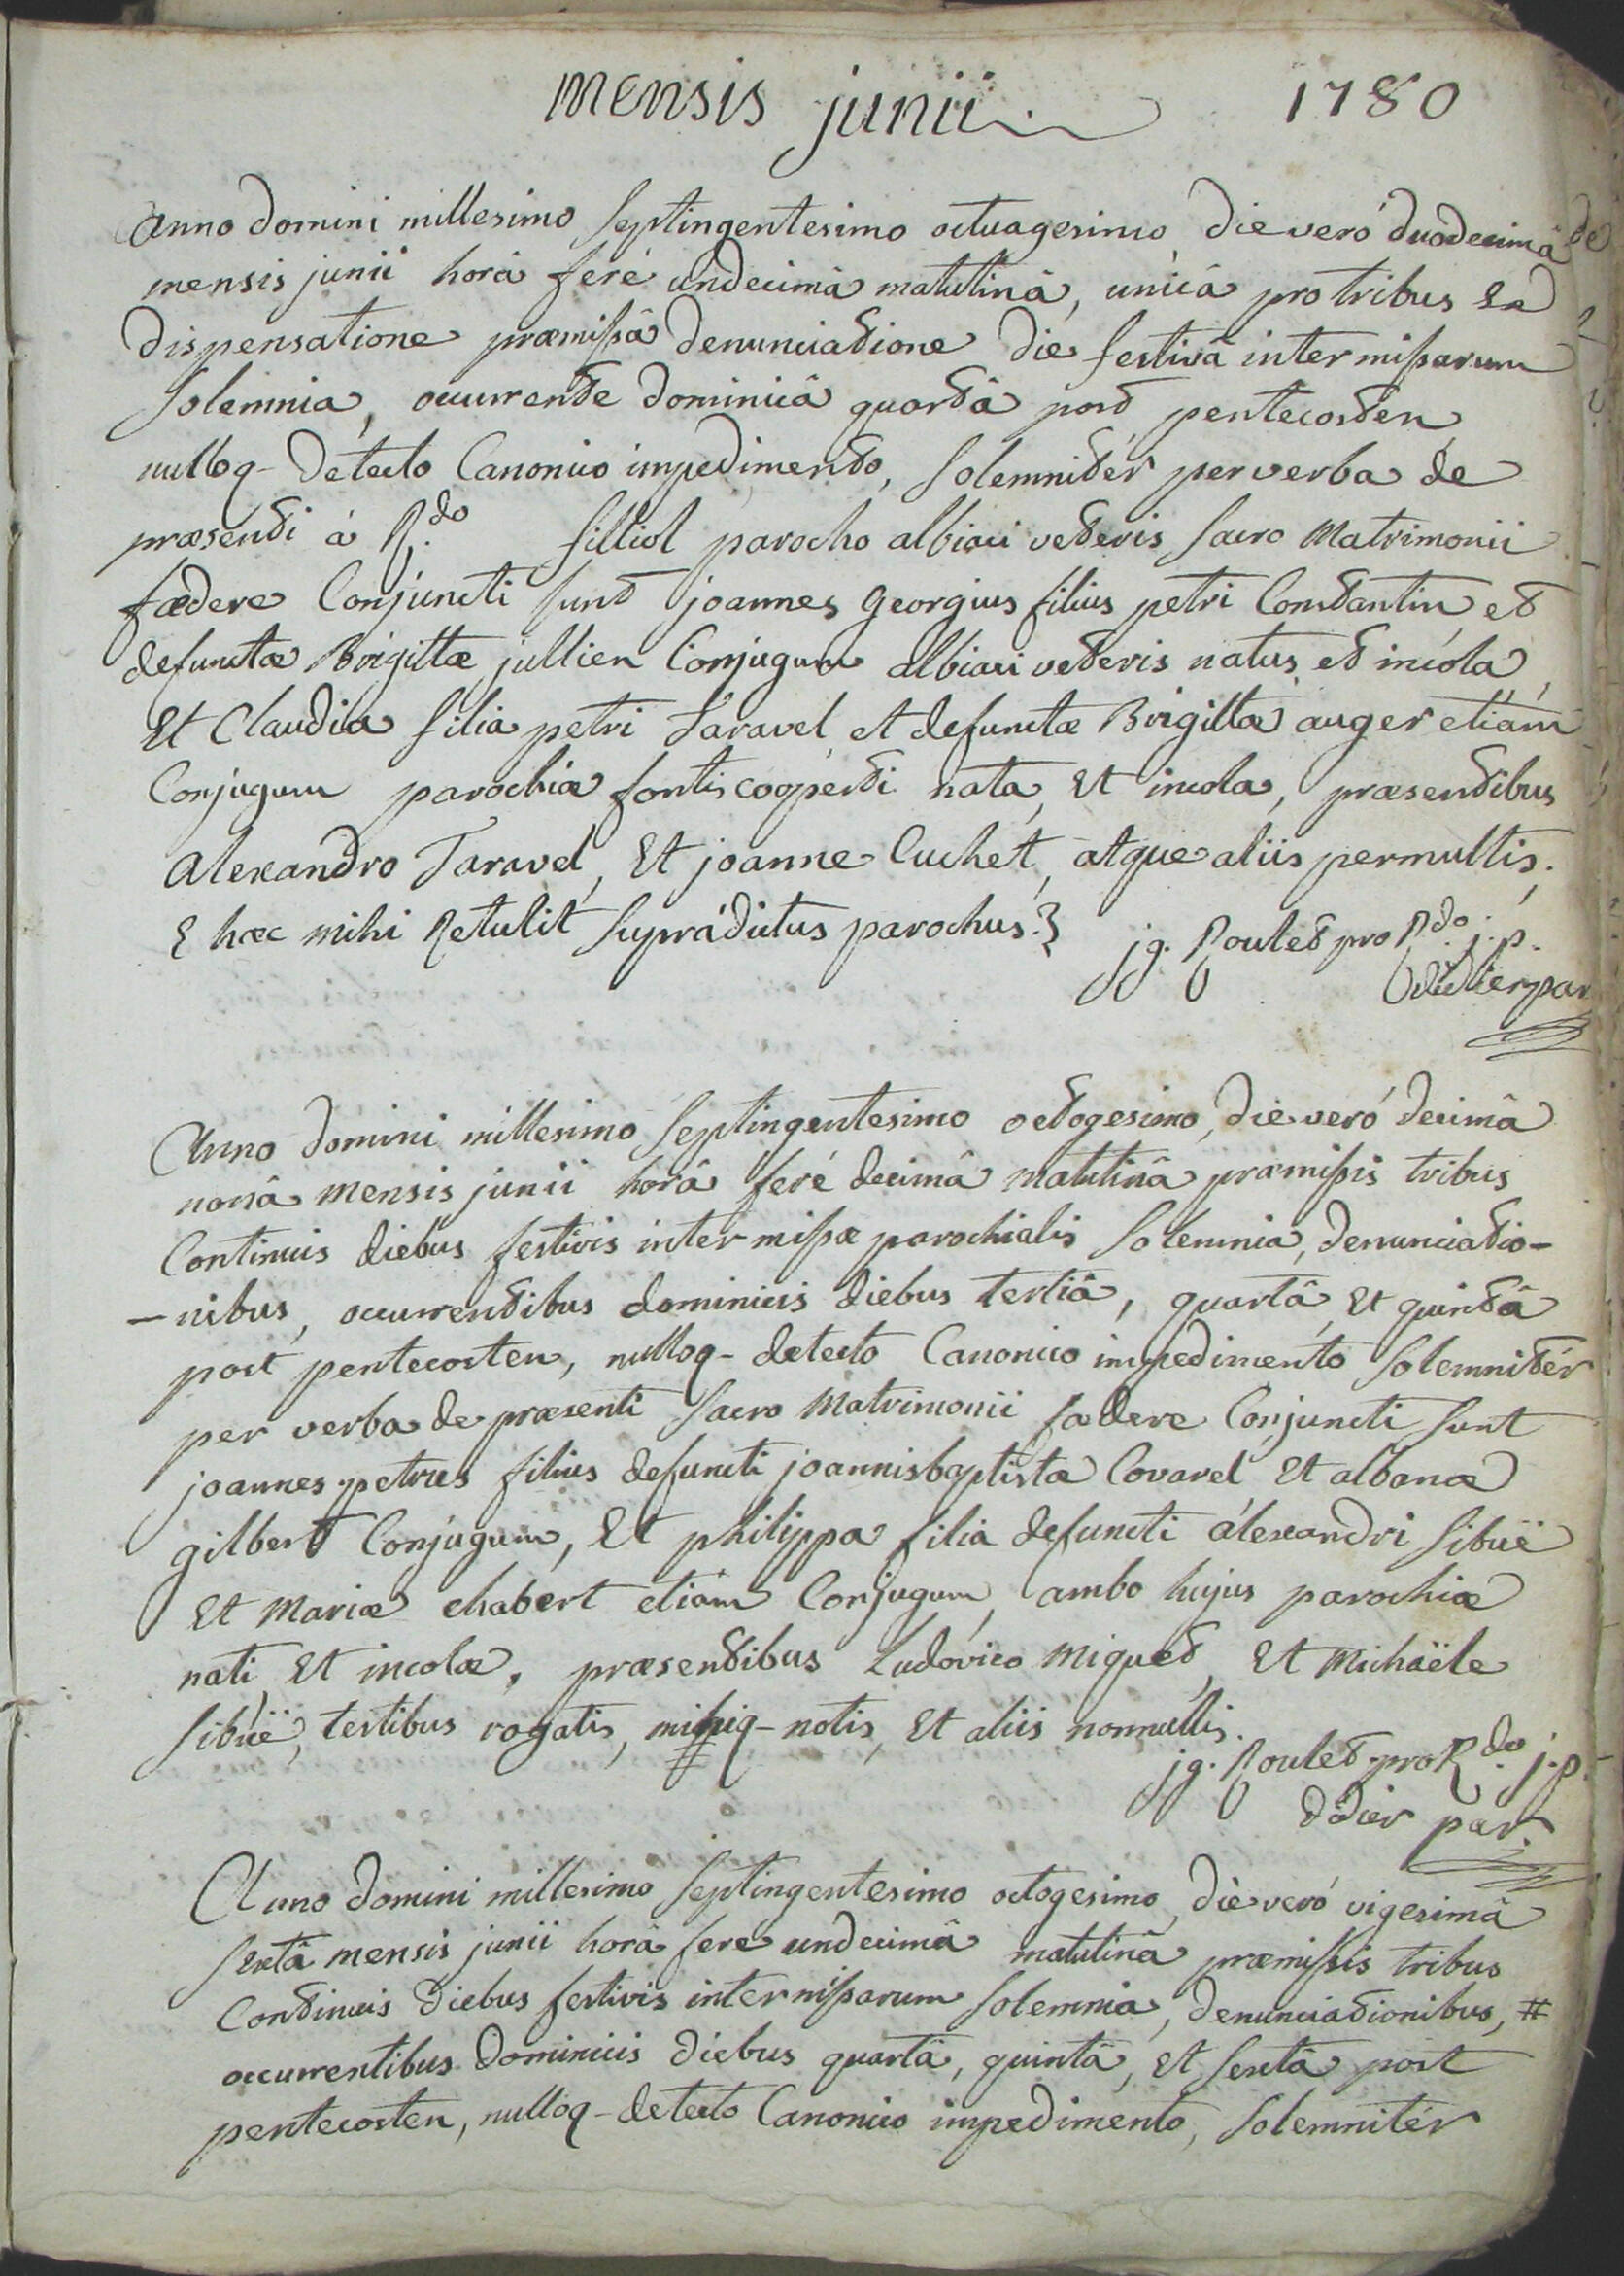 mensis junii. 1780
Anno Domini millesimo Septingentesimo octuagesimo die veró duodecimâ
mensis junii horâ feré undecimâ matutinâ, unicâ pro tribus ex
dispensatione præmissâ denunciatione die festivâ inter missarum
Solemnia, occurrente dominicâ quartâ post pentecosten
nulloq- detecto Canonico impedimento, Solemnitér per verba de
præsenti à R.do filliol parocho albiaci veteris Sacro Matrimonii
fædere Conjuncti Sunt joannes georgius filius petri Constantin et
defunctæ Brigittæ jullien Conjugum albiaci veteris natus et incola,
Et Claudia filia petri taravel et defunctæ Brigittæ auger etiam
Conjugum parochiæ fontiscooperti nata, Et incola, præsentibus
Alexandro Taravel, Et joanne Cuchet, atque aliis permultis.
& hæc mihi Retulit Supradictus parochus.
jg. Roulet pro R.do j. p.
didier par
Anno Domini millesimo Septingentesimo octogesimo, die veró decimâ
nonâ mensis junii horâ feré decimâ matutinâ præmissis tribus
Continuis diebus festivis inter missæ parochialis Solemnia, denunciatio-
-nibus, occurrentibus dominicis diebus tertiâ, quartâ, Et quintâ
post pentecosten, nulloq- detecto Canonico impedimento Solemnitér
per verba de præsenti Sacro Matrimonii fædere Conjuncti Sunt
joannes petrus filius defuncti joannisbaptistæ Covarel Et albanæ
gilbert Conjugum, Et philippa filia defuncti alexandri Sibué
Et Mariæ chabert etiam Conjugum, ambo hujus parochiæ
nati Et incolæ, præsentibus Ludovico Miquet, Et Michaële
Sibué, testibus rogatis, mihiq- notis, Et aliis nonnullis.
jg. Roulet pro R.do j. p.
didier par.
Anno Domini millesimo Septingentesimo octogesimo, die veró vigesimâ
Sextâ mensis junii horâ fere undecimâ matutinâ præmissis tribus
Continuis diebus festivis inter missarum Solemnia, denunciationibus, #
occurrentibus Dominicis diebus quartâ, quintâ, Et Sextâ post
pentecosten, nulloq- detecto Canonico impedimento, Solemnitér